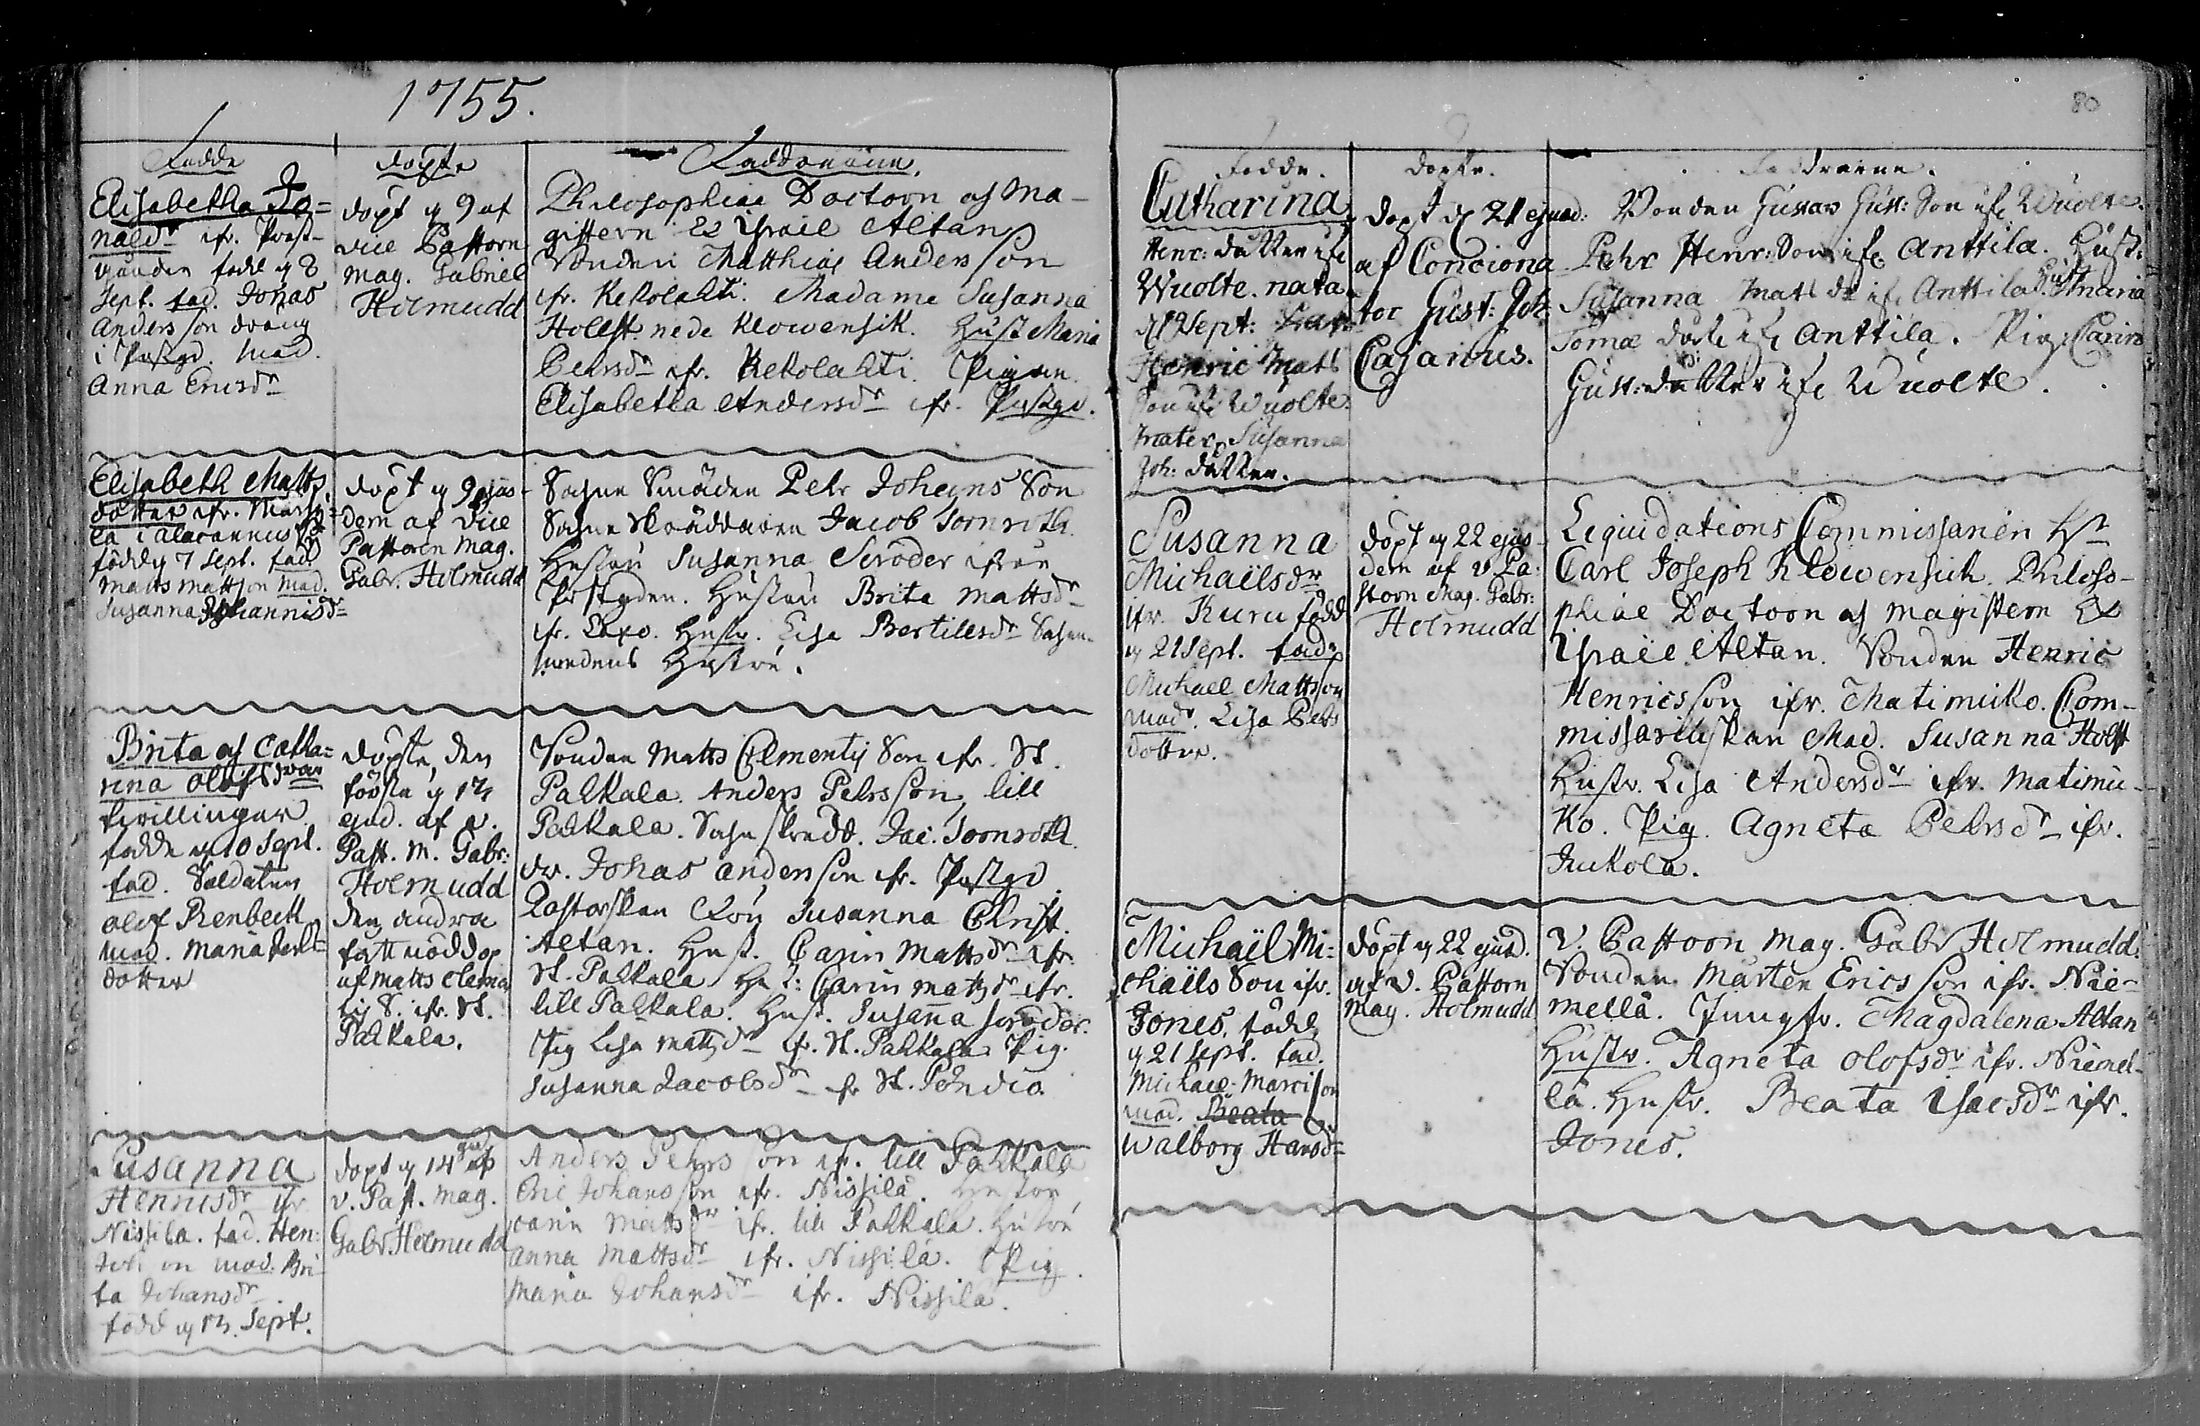 1755.
Födde
Döpte
Faddrarne.
Elisabetha Jo=
næ dr ifr. Prest-
gården född g 8
Sept. fad. Jonas
Andersson dräng
i Prstgd. Mod.
Anna Ericsdr
döpt g 9 af
vice Pastorn
Mag. Gabriel
Holmudd
Philosophiæ Doctorn och Ma-
gistern Es Israel Altan
Bonden Matthias Andersson
ifr. Kekolahti. Madame Susanna
Holst nede Klowensik. Hust Maria
Pehrsdr ifr. Kekolahti. Pigan
Elisabetha Andersdr ifr. Prstgd.
Elisabeth Matts
dotter ifr.
född g 7 Sept. fad
Matts Mattson Mod.
Susanna Johannisdr
döpt g 9 ejus-
dem af Vice
Pastorn Mag.
Gabr. Holmudd
Sokne Smeden Petr Johans Son
Sokne Skräddaren Jacob Tornroth
Hustru Susanna Scroder ifrån
Prstgden. Hustru Brita Mattsdr
ifr. Hustr. Lisa Bertilsdr Sokne
smedens Hustru.
Brita och Catha=
rina Olofsdrar
tvillingar
födde g 10 Sept.
fad. Soldaten
Olof Renbeck
Mod. Maria
dotter
döpte, den
första g 12
ejud. af v.
Past. M. Gabr:
Holmudd
den andra
fått nöddop
af Matts Clemen
tij S. ifr. St.
Pakkala.
Bonden Matts Clementij Son ifr. St.
Pakkala. Anders Pehrsson, lill
Pakkala. Sokne skredd. Jac. Tornroth
dr. Johas Andersson ifr. Prstgd
Pastorskan Fru Susanna Christ.
Altan. Hust. Carin Mattsdr ifr.
St. Pakkala Hust: Carin Mattsdr ifr.
lill Pakkala. Hust. Susanna Scroder.
Pig Lisa Mattsdr ifr. St. Pakkala Pig.
Susanna Jacobsdr ifr St.
Susanna
Henricsdr ifr
Nissila. fad. Hen:
Joh on Mod. Bri-
ta Johansdr
född g 13. Sept.
döpt g 14 ejud af
v. Past. Mag.
Gabr. Holmudd
Anders Pehrsson ifr. lill Pakkala
Eric Johansson ifr. Nissilä. Hustru
Carin Mattsdr ifr. lill Pakkala. Hustru
Anna Mattsdr ifr. Nissilä. Pig.
Maria Johansdr ifr. Nissilä.
80
Födde.
Döpte.
Faddrarne.
Catharina
Henr: dotter ifr
Wuolte. nata
Sept:
Henric Mats
Son ifr Wuolte.
Mater Susanna
Joh: dotter.
döpt d 21 ejusd:
af Conciona
tor Gust: Joh:
Cajanus.
Bonden Gustav Gust: Son ifr Wuolte.
Pehr Henr: Son ifr. Anttila. Hust:
Susanna Mats dr ifr Anttila Hust Maria
Tomæ dotr ifr Anttila. Pig: Carin
Gust: dotter ifr Wuolte.
Susanna
Michaëlsdr
ifr. Kuru född
g 21 Sept. fadr
Michael Mattson
Modr. Lisa Pehrs
dotter.
döpt g 22 ejus-
dem af v. Pa-
storn Mag. Gabr:
Holmudd
Liquidations Commissarien Hr
Carl Joseph Klowensich. Philoso-
phiæ Doctorn och Magistern Es
Israel Altan. Bonden Henric
Henricsson ifr. Matimiko. Com-
missarie Skan Mad. Susanna Holst
Hustr. Lisa Andersdr ifr. Matimi-
ko. Pig. Agneta Pehrsdr ifr.
Jukola.
Michaël Mi-
chaëls Son ifr.
Jones, född
g 21 Sept. fad.
Michael Marcison
Mod. Beata
Walborg Hansdr
döpt g 22 ejusd.
af v. Pastorn
Mag. Holmudd
V. Pastorn Mag. Gabr Holmudd.
Bonden Mårten Ericsson ifr. Nie-
mellä. Jungfr. Magdalena Altan
Hustr. Agneta Olofsdr ifr. Niemel-
lä. Hustr. Beata Isacsdr ifr.
Jones.